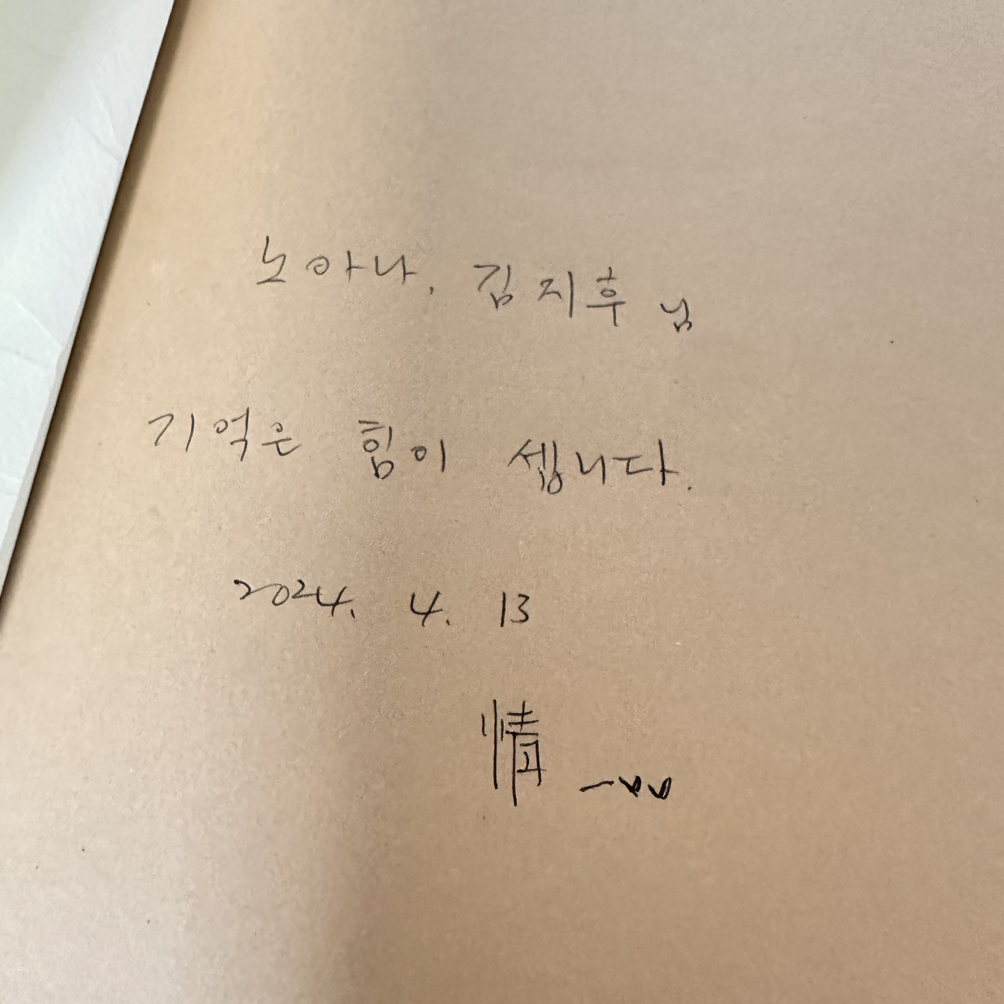 노아나, 김지후 님
기억은 힘이 셉니다.
2024. 4. 13
情